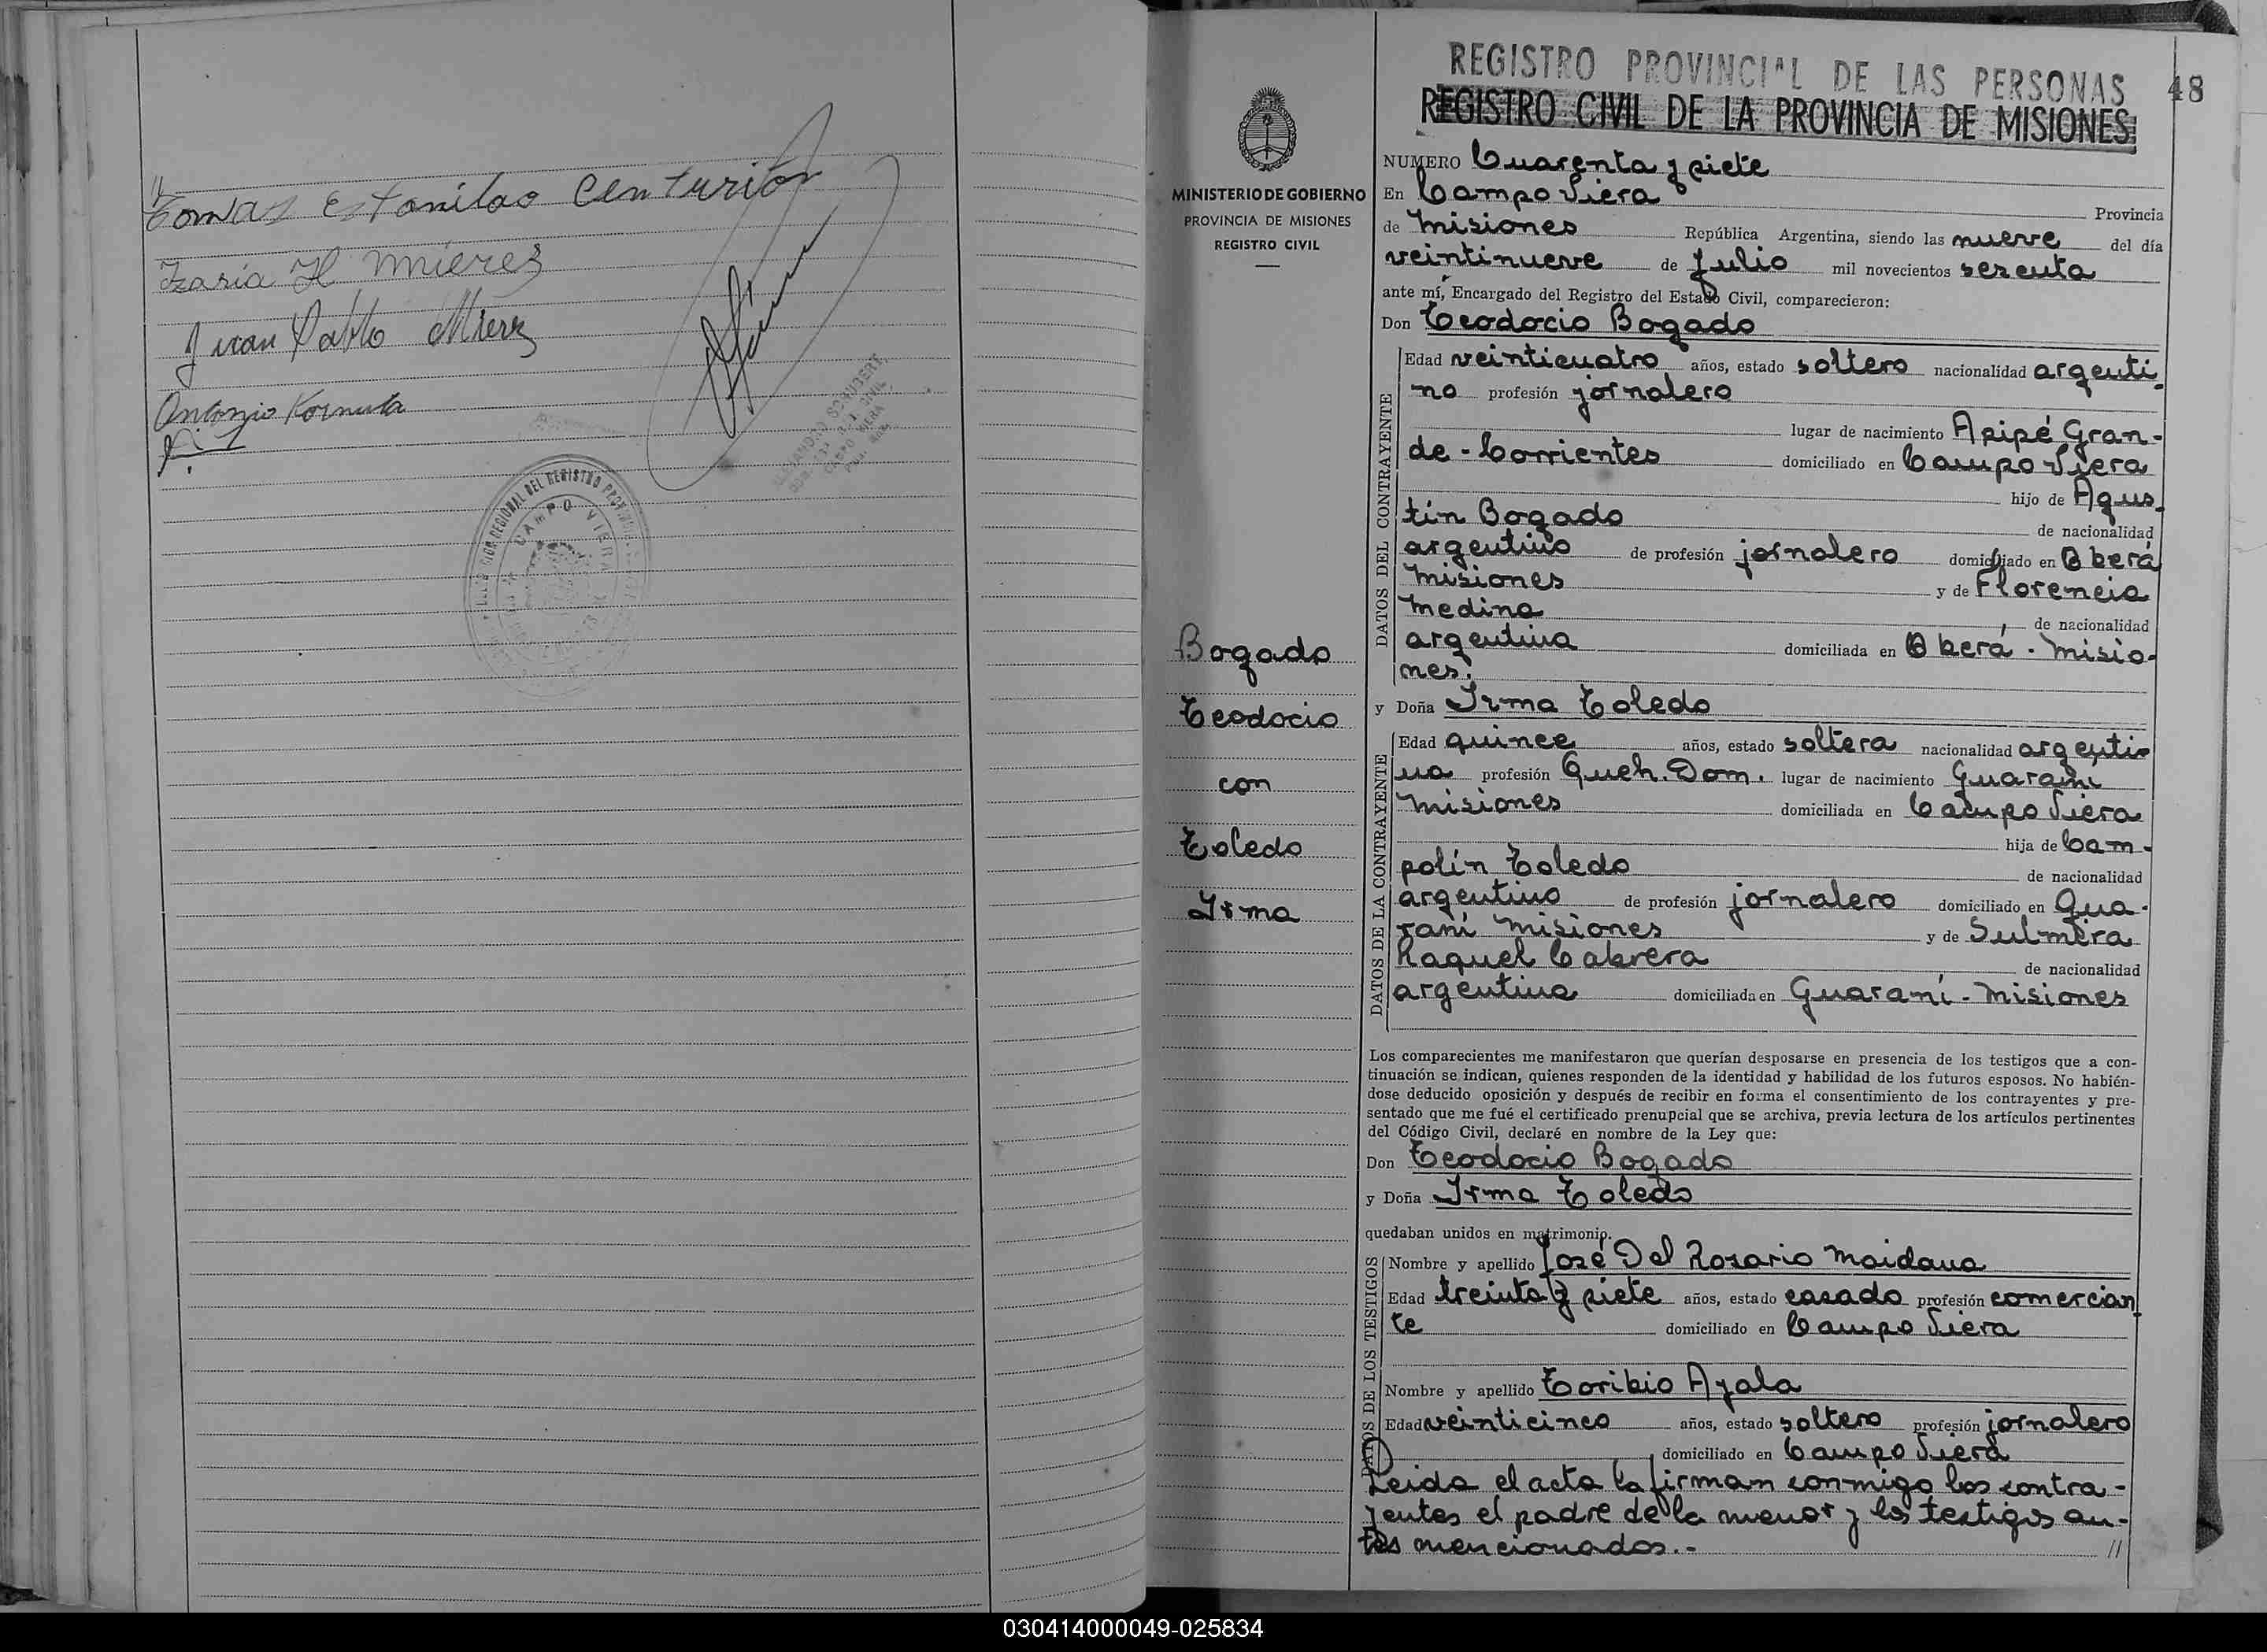 Tomas Estanilao Centurión
Izaria H Mieres
Juan Pablo Mierez
Antonio Kornuta
CAMPO VIERA
MINISTERIO DE GOBIERNO
PROVINCIA DE MISIONES
REGISTRO CIVIL
Bogado
Teodocio
con
Toledo
Irma
REGISTRO PROVINCIAL DE LAS PERSONAS
48
REGISTRO CIVIL DE LA PROVINCIA DE MISIONES
NUMERO Cuarenta y siete
En Campo Viera Provincia
de Misiones República Argentina, siendo las nueve del día
veintinueve de Julio mil novecientos sesenta
ante mí, Encargado del Registro del Estado Civil, comparecieron:
Don Teodocio Bogado
DATOS DEL CONTRAYENTE
Edad veinticuatro años, estado soltero nacionalidad argenti-
no profesión jornalero
lugar de nacimiento Apipé Gran-
de - Corrientes domiciliado en Campo Viera
hijo de Agus-
tín Bogado de nacionalidad
argentino de profesión jornalero domiciliado en Oberá
Misiones y de Florencia
Medina de nacionalidad
argentina domiciliada en Oberá - Misio-
nes.
y Doña Irma Toledo
DATOS DE LA CONTRAYENTE
Edad quince años, estado soltera nacionalidad argenti-
na profesión Queh. Dom. lugar de nacimiento Guaraní
Misiones domiciliada en Campo Viera
hija de Cam-
polín Toledo de nacionalidad
argentino de profesión jornalero domiciliado en Gua-
raní Misiones y de Sulmira
Raquel Cabrera de nacionalidad
argentina domiciliada en Guaraní - Misiones
Los comparecientes me manifestaron que querían desposarse en presencia de los testigos que a con-
tinuación se indican, quienes responden de la identidad y habilidad de los futuros esposos. No habién-
dose deducido oposición y después de recibir en forma el consentimiento de los contrayentes y pre-
sentado que me fué el certificado prenupcial que se archiva, previa lectura de los artículos pertinentes
del Código Civil, declaré en nombre de la Ley que:
Don Teodocio Bogado
y Doña Irma Toledo
quedaban unidos en matrimonio.
DATOS DE LOS TESTIGOS
Nombre y apellido José Del Rosario Maidana
Edad treinta y siete años, estado casado profesión comercian-
te domiciliado en Campo Viera
Nombre y apellido Toribio Ayala
Edad veinticinco años, estado soltero profesión jornalero
domiciliado en Campo Viera
Leida el acta la firman conmigo los contra-
yentes el padre de la menor y los testigos an-
tes mencionados.- //
030414000049-025834